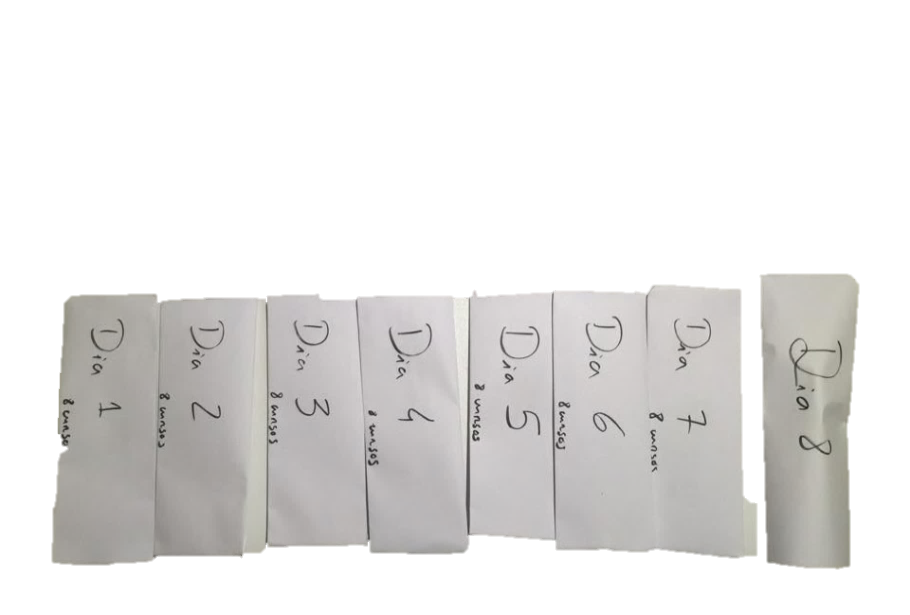 Dia 1
8 curso
Dia 2
8 cursos
Dia 3
8 cursos
Dia 4
8 cursos
Dia 5
8 cursos
Dia 6
8 cursos
Dia 7
8 cursos
Dia 8